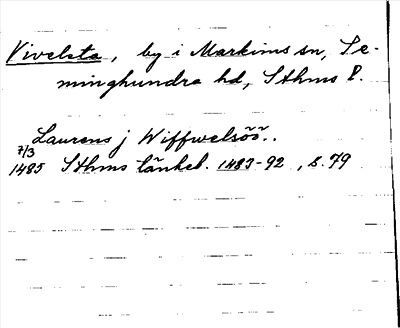 Vivelsta, by i Markims sn, Se-
minghundra hd, Sthms l.
Laurens j Wiffwelsöö..
7/3
1485 Sthms tänkeb. 1483-92, s. 79